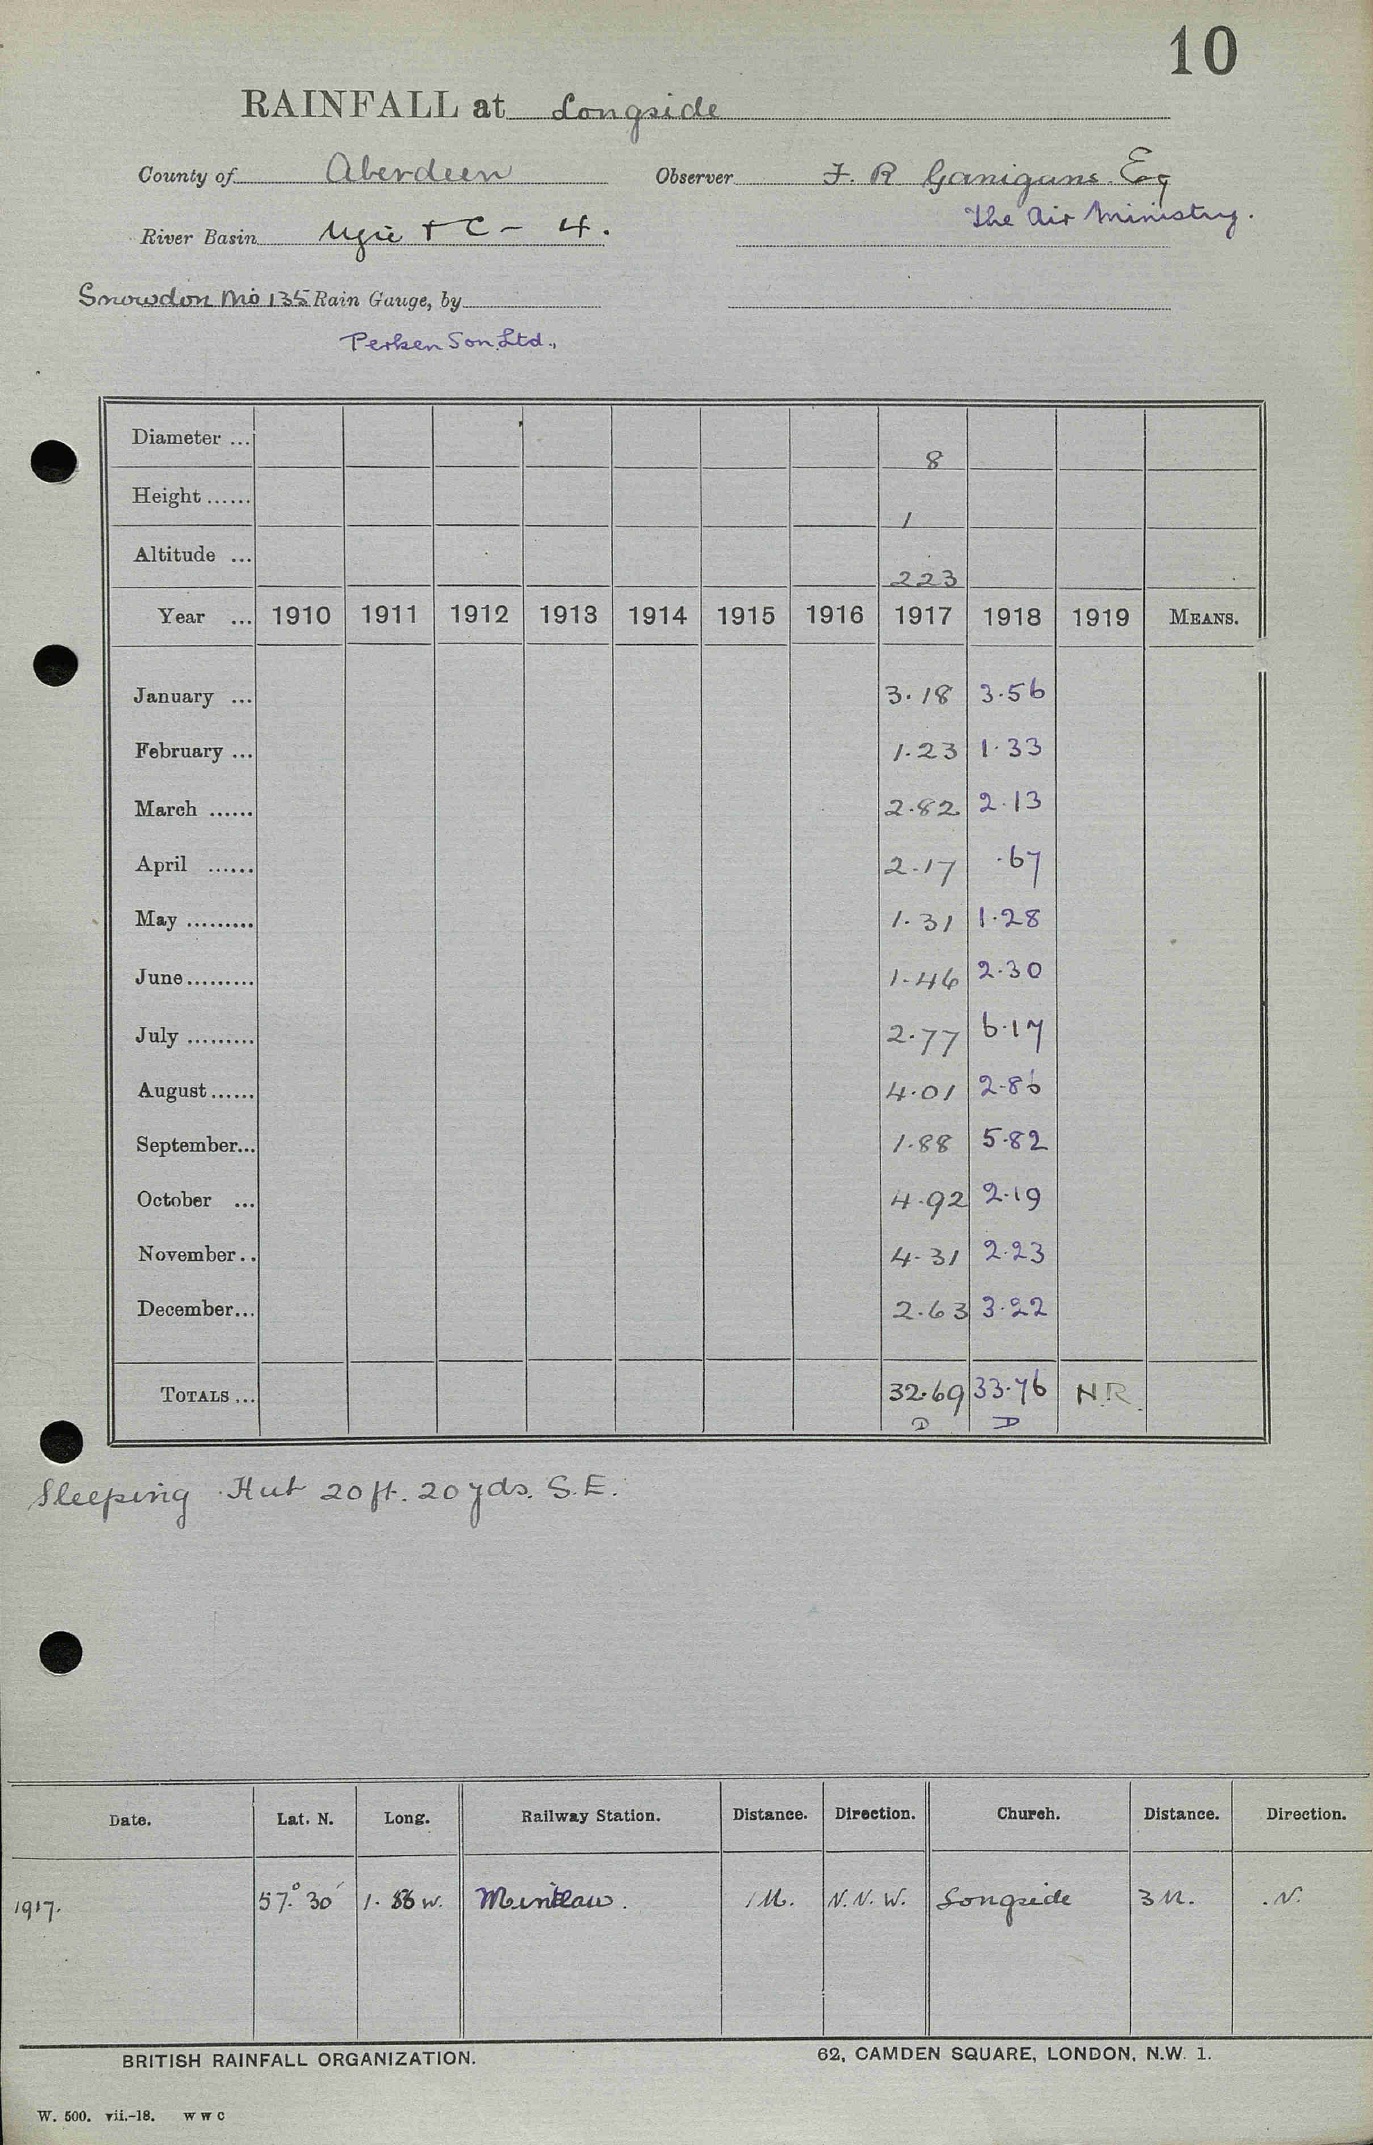 10
RAINFALL at Longside
County of Aberdeen Observer F. R Esq
River Basin Ugie + C – 4. The Air Ministry.
Snowdon Mo 135 Rain Gauge, by
Perken Son. Ltd.,
Diameter ... 8
Height ...... 1
Altitude ... 223
Year ... 1910 1911 1912 1913 1914 1915 1916 1917 1918 1919 MEANS.
January ... 3.18 3.56
February ... 1.23 1.33
March ...... 2.82 2.13
April ...... 2.17 .67
May ......... 1.31 1.28
June ......... 1.46 2.30
July ......... 2.77 6.17
August ...... 4.01 2.86
September ... 1.88 5.82
October ... 4.92 2.19
November .. 4.31 2.23
December ... 2.63 3.22
TOTALS ... 32.69 33.76 N.R.
D D
Sleeping Hut 20 ft. 20 yds. S.E.
Date. Lat. N. Long. Railway Station. Distance. Direction. Church. Distance. Direction.
1917. 57.° 30′ 1. W. Mintlaw. 1 M. N.N.W. Longside 3 M. N.
BRITISH RAINFALL ORGANIZATION. 62, CAMDEN SQUARE, LONDON, N.W. 1.
W. 500. vii.–18. W W C